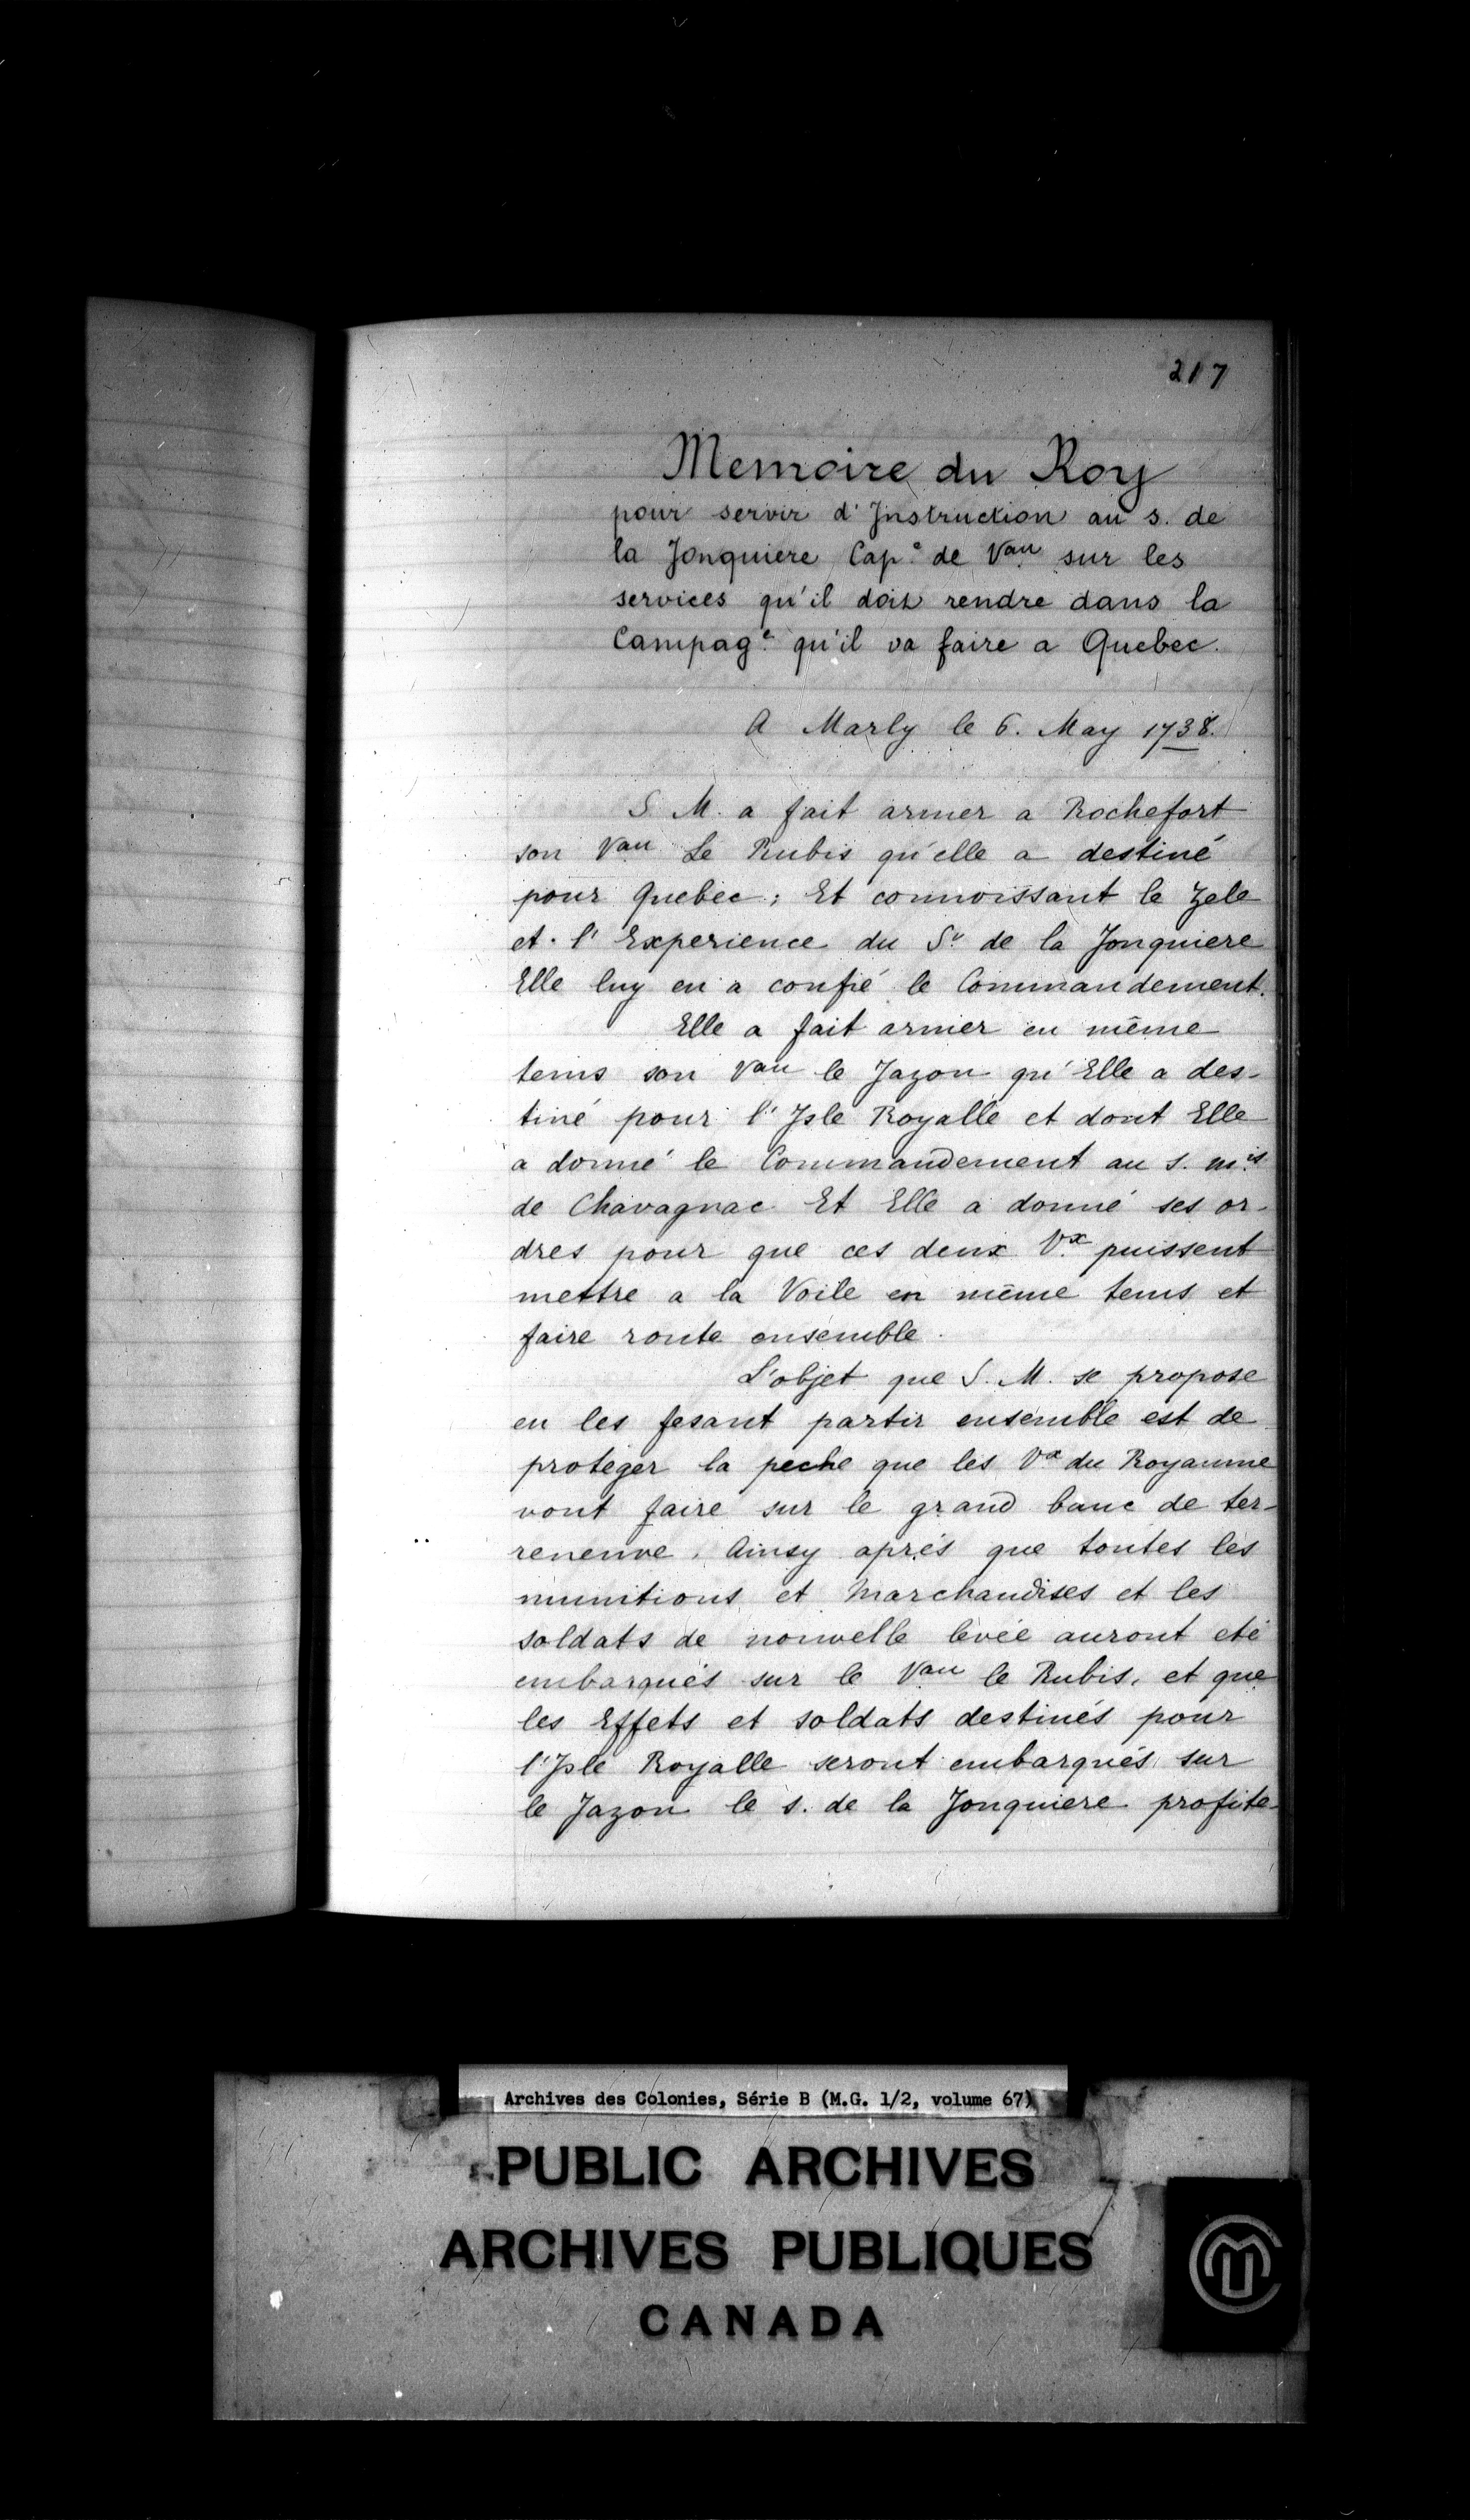 217
Memoire du Roy
pour servir d'Instruction au s. de
la Jonquiere Cap.e de Vau sur les
services qu'il doit rendre dans la
Campag.e qu'il va faire a Quebec.
A Marly le 6. May 1738.
S M. a fait armer a Rochefort
son Vau Le Rubis qu'elle a destiné
pour Quebec; Et connoissant le Zele
et l'Experience du Sr de la Jonquiere
Elle luy en a confié le Commandement.
Elle a fait armer en même
tems son Vau le Jazon qu'Elle a des-
tiné pour l'Isle Royalle et dont Elle
a donné le Commandement au s. m.is
de Chavagnac Et Elle a donné ses or-
dres pour que ces deux V.x puissent
mettre a la Voile en même tems et
faire route ensemble.
L'objet que S. M. se propose
en les fesant partir ensemble est de
proteger la peche que les Vx du Royaume
vont faire sur le grand banc de ter-
reneuve. Ainsy aprés que toutes les
munitions et Marchandises et les
soldats de nouvelle levée auront eté
embarqués sur le Vau le Rubis, et que
les Effets et soldats destinés pour
l'Isle Royalle seront embarqués sur
le Jazon le s. de la Jonquiere profite-
Archives des Colonies, Série B (M.G. 1/2, volume 67)
PUBLIC ARCHIVES
ARCHIVES PUBLIQUES
CANADA